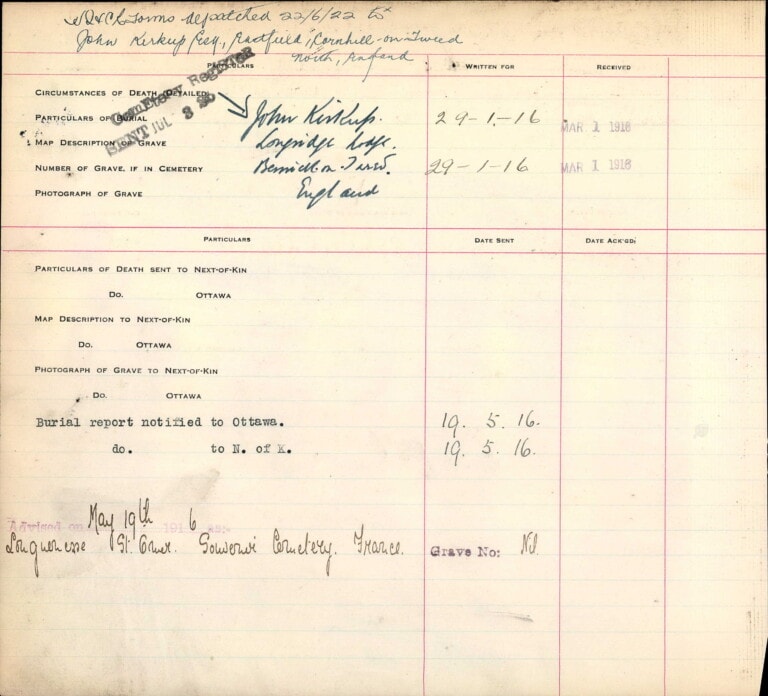 Forms despatched 22/6/22 to
John Kirkup Esq., Eastfield, Cornhill-on-Tweed
North, England
Particulars Written for Received
Cemetery Register
SENT JUL 3
Circumstances of Death (Detailed)
Particulars of Burial John Kirkup. 29-1-16 MAR 1 1916
Map Description of Grave Longridge Lodge.
Number of Grave, if in Cemetery 29-1-16 MAR 1 1916
Photograph of Grave England
Particulars Date Sent Date Ack'gd:
Particulars of Death sent to Next-of-Kin
Do. Ottawa
Map Description to Next-of-Kin
Do. Ottawa
Photograph of Grave to Next-of-Kin
Do. Ottawa
Burial report notified to Ottawa. 19. 5. 16.
do. to N. of K. 19. 5. 16.
Advised on May 19th 191 6 as:-
Longuenesse St. Omer. Souvenir Cemetery. France. Grave No: Nil.